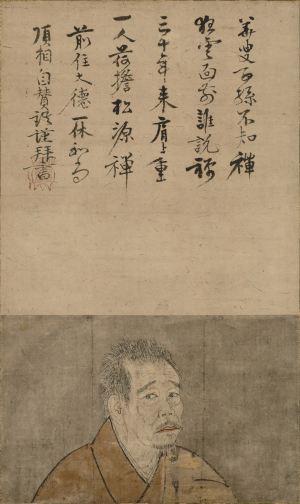 華叟子孫不知禪
狂雲面前誰説禪
三十年来肩上重
一人荷擔松源禪
前住大徳一休和尚
頂相自賛語謹拝書